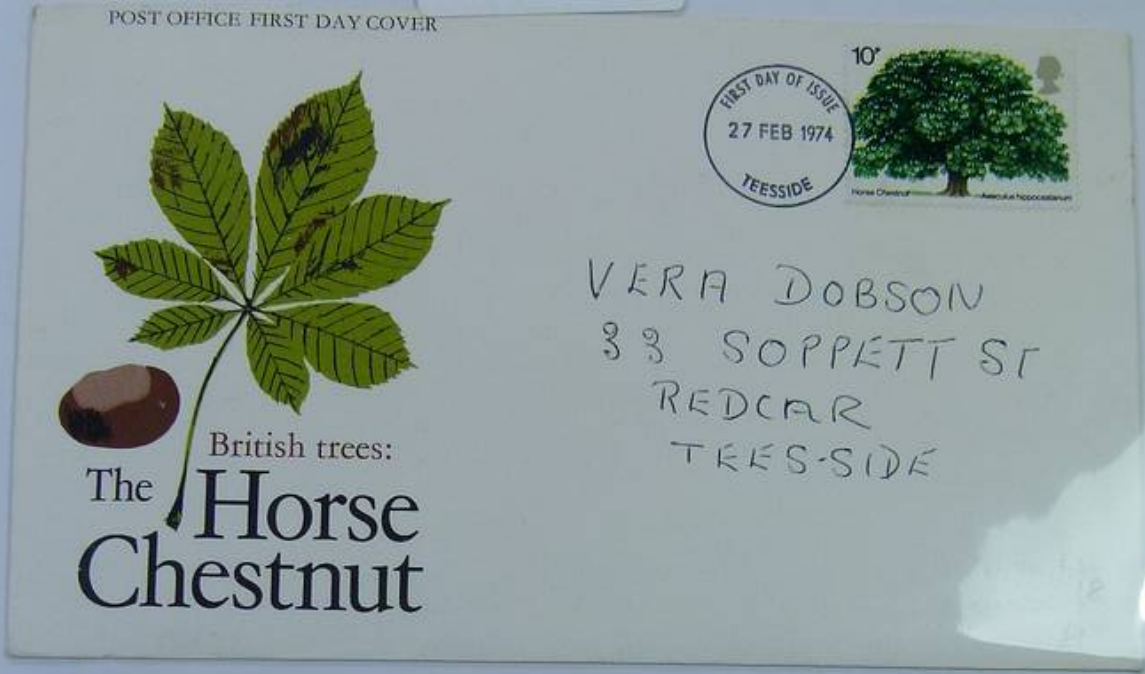 POST OFFICE FIRST DAY COVER
10P
FIRST DAY OF ISSUE
27 FEB 1974
TEESSIDE
Horse Chestnut Aesculus hippocastanum
VERA DOBSON
33 SOPPETT ST
REDCAR
TEES-SIDE
British trees:
The Horse
Chestnut